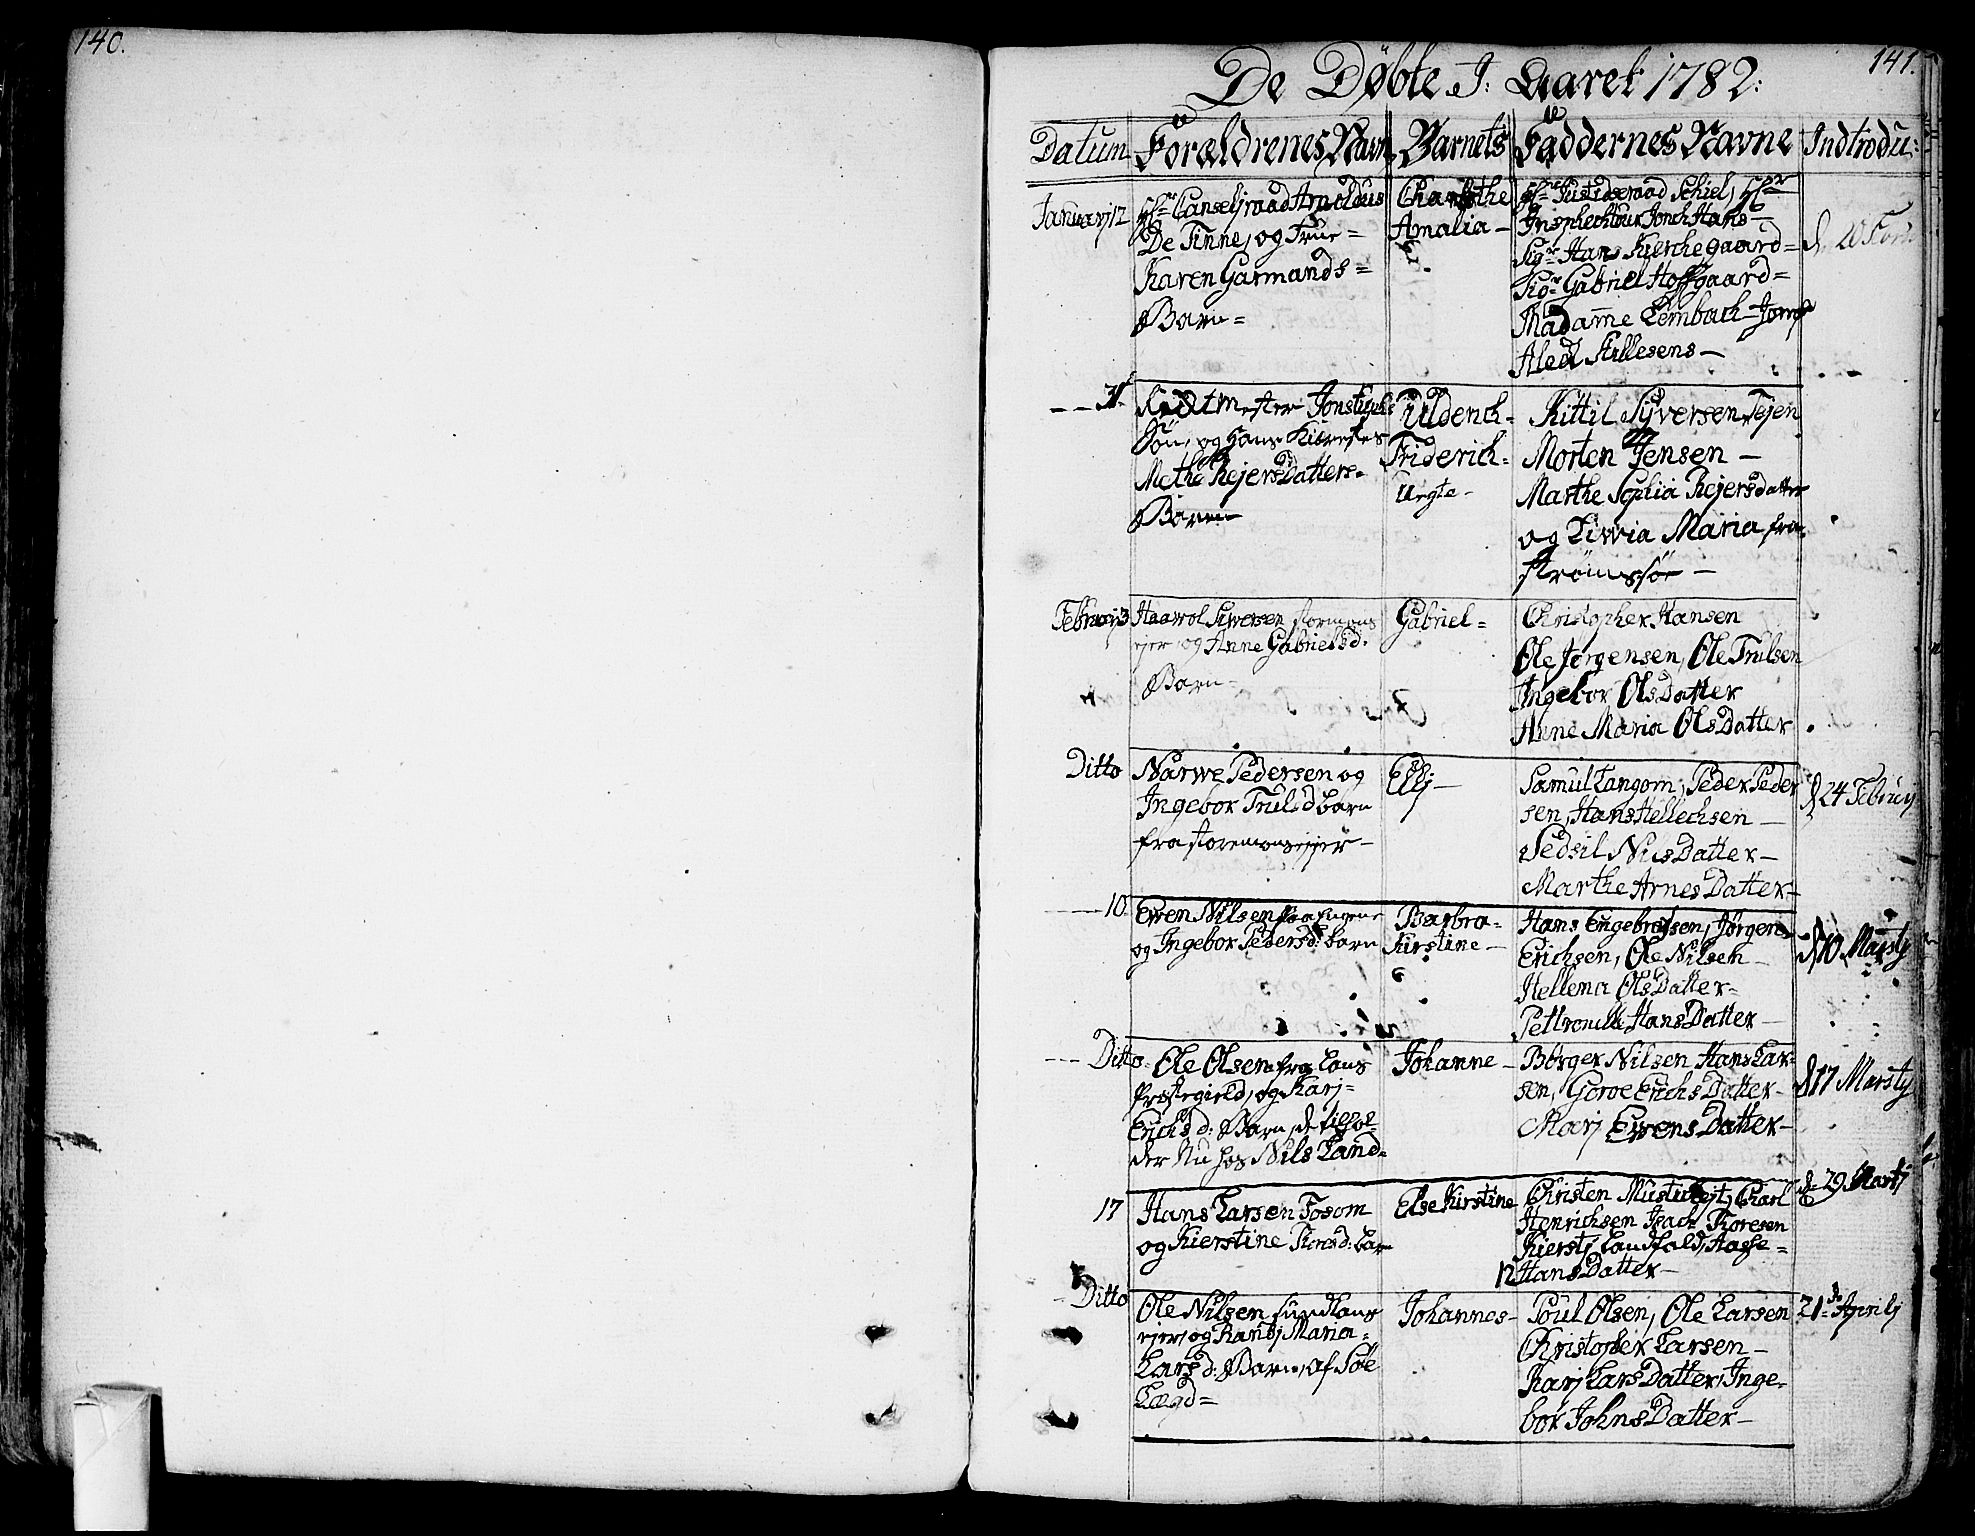 140.
141.
De Døbte J: Aaret 1782:
Datum Forældrenes Navn Barnets Faddernes Navne Indtrodu:
Januarj 12
Hr Canseljraad Arnoldus
De Tinne, og Frue =
Karen Garmands =
Barn =
Charlothe
Amalia —
Hr Justidsraad Schiel, Hr
Insphechteur Jonch Hans —
Sigr Hans Kierchegaard =
Gabriel Hoffgaard =
Madame Lembach — Jomf
Aled Stillesens —
d. 20
31
og hans Kiæreste
Methe Rejers Datters =
Barn —
Ulderich =
Friderich =
Uegte —
Kittil Syversen Tejen
Morten Jensen —
Marthe Sophia Rejersdatter
og Liwia Maria fra
Strømssøe —
Februarj 3
Haavol Siwersen stormons
ejer, og Anne Gabrielsd:
Barn —
Gabriel =
Christopher Hansen
Ole Jørgensen, Ole Trulsen
Ingebor Ols Datter
Anne Maria Ols Datter
Ditto
Narwe Pedersen og
Ingebor Truls d barn
fra storemonsejer —
Ellj —
Samul Langom, Peder Peder
sen, Hans Hellechsen —
Sedsil Nils Datter —
Marthe Arnes Datter —
d 24 Februarj
10
Ewen Nilsen paa Engene
og Ingebor Pedersd: barn
Barbra =
Kirstine —
Hans Engebretsen, Jørgen
Erichsen, Ole Nilsen —
Hellena Ols Datter =
Pettronille Hans Datter —
d 10 Martj
Ditto
Ole Olsen fra Lans
Prestegield, og Karj =
Erichs d: Barn, de tilhol =
der Nu hos Nils Land =
Johanne —
Børger Nilsen Hans Lar =
sen, Goroe Erichs Datter —
Marj Ewens Datter —
d 17 Martj
17
Hans Larsen Fosom
og Kierstine Toresd: barn
Else Kirstine
Christen Charl
Henrichsen Isach Toresen
Kierstj Landfald, Aasse =
12 Hans Datter —
d. 29 Martj
Ditto
Ole Nilsen sundlans
ejer, og Randj Maria =
Lars d: Barn, af Søe
Lægd =
Johannes —
Poul Olsen, Ole Larsen
Christopher Larsen —
Karj Lars Datter, Inge =
bor Johns Datter —
21 de Aprilj